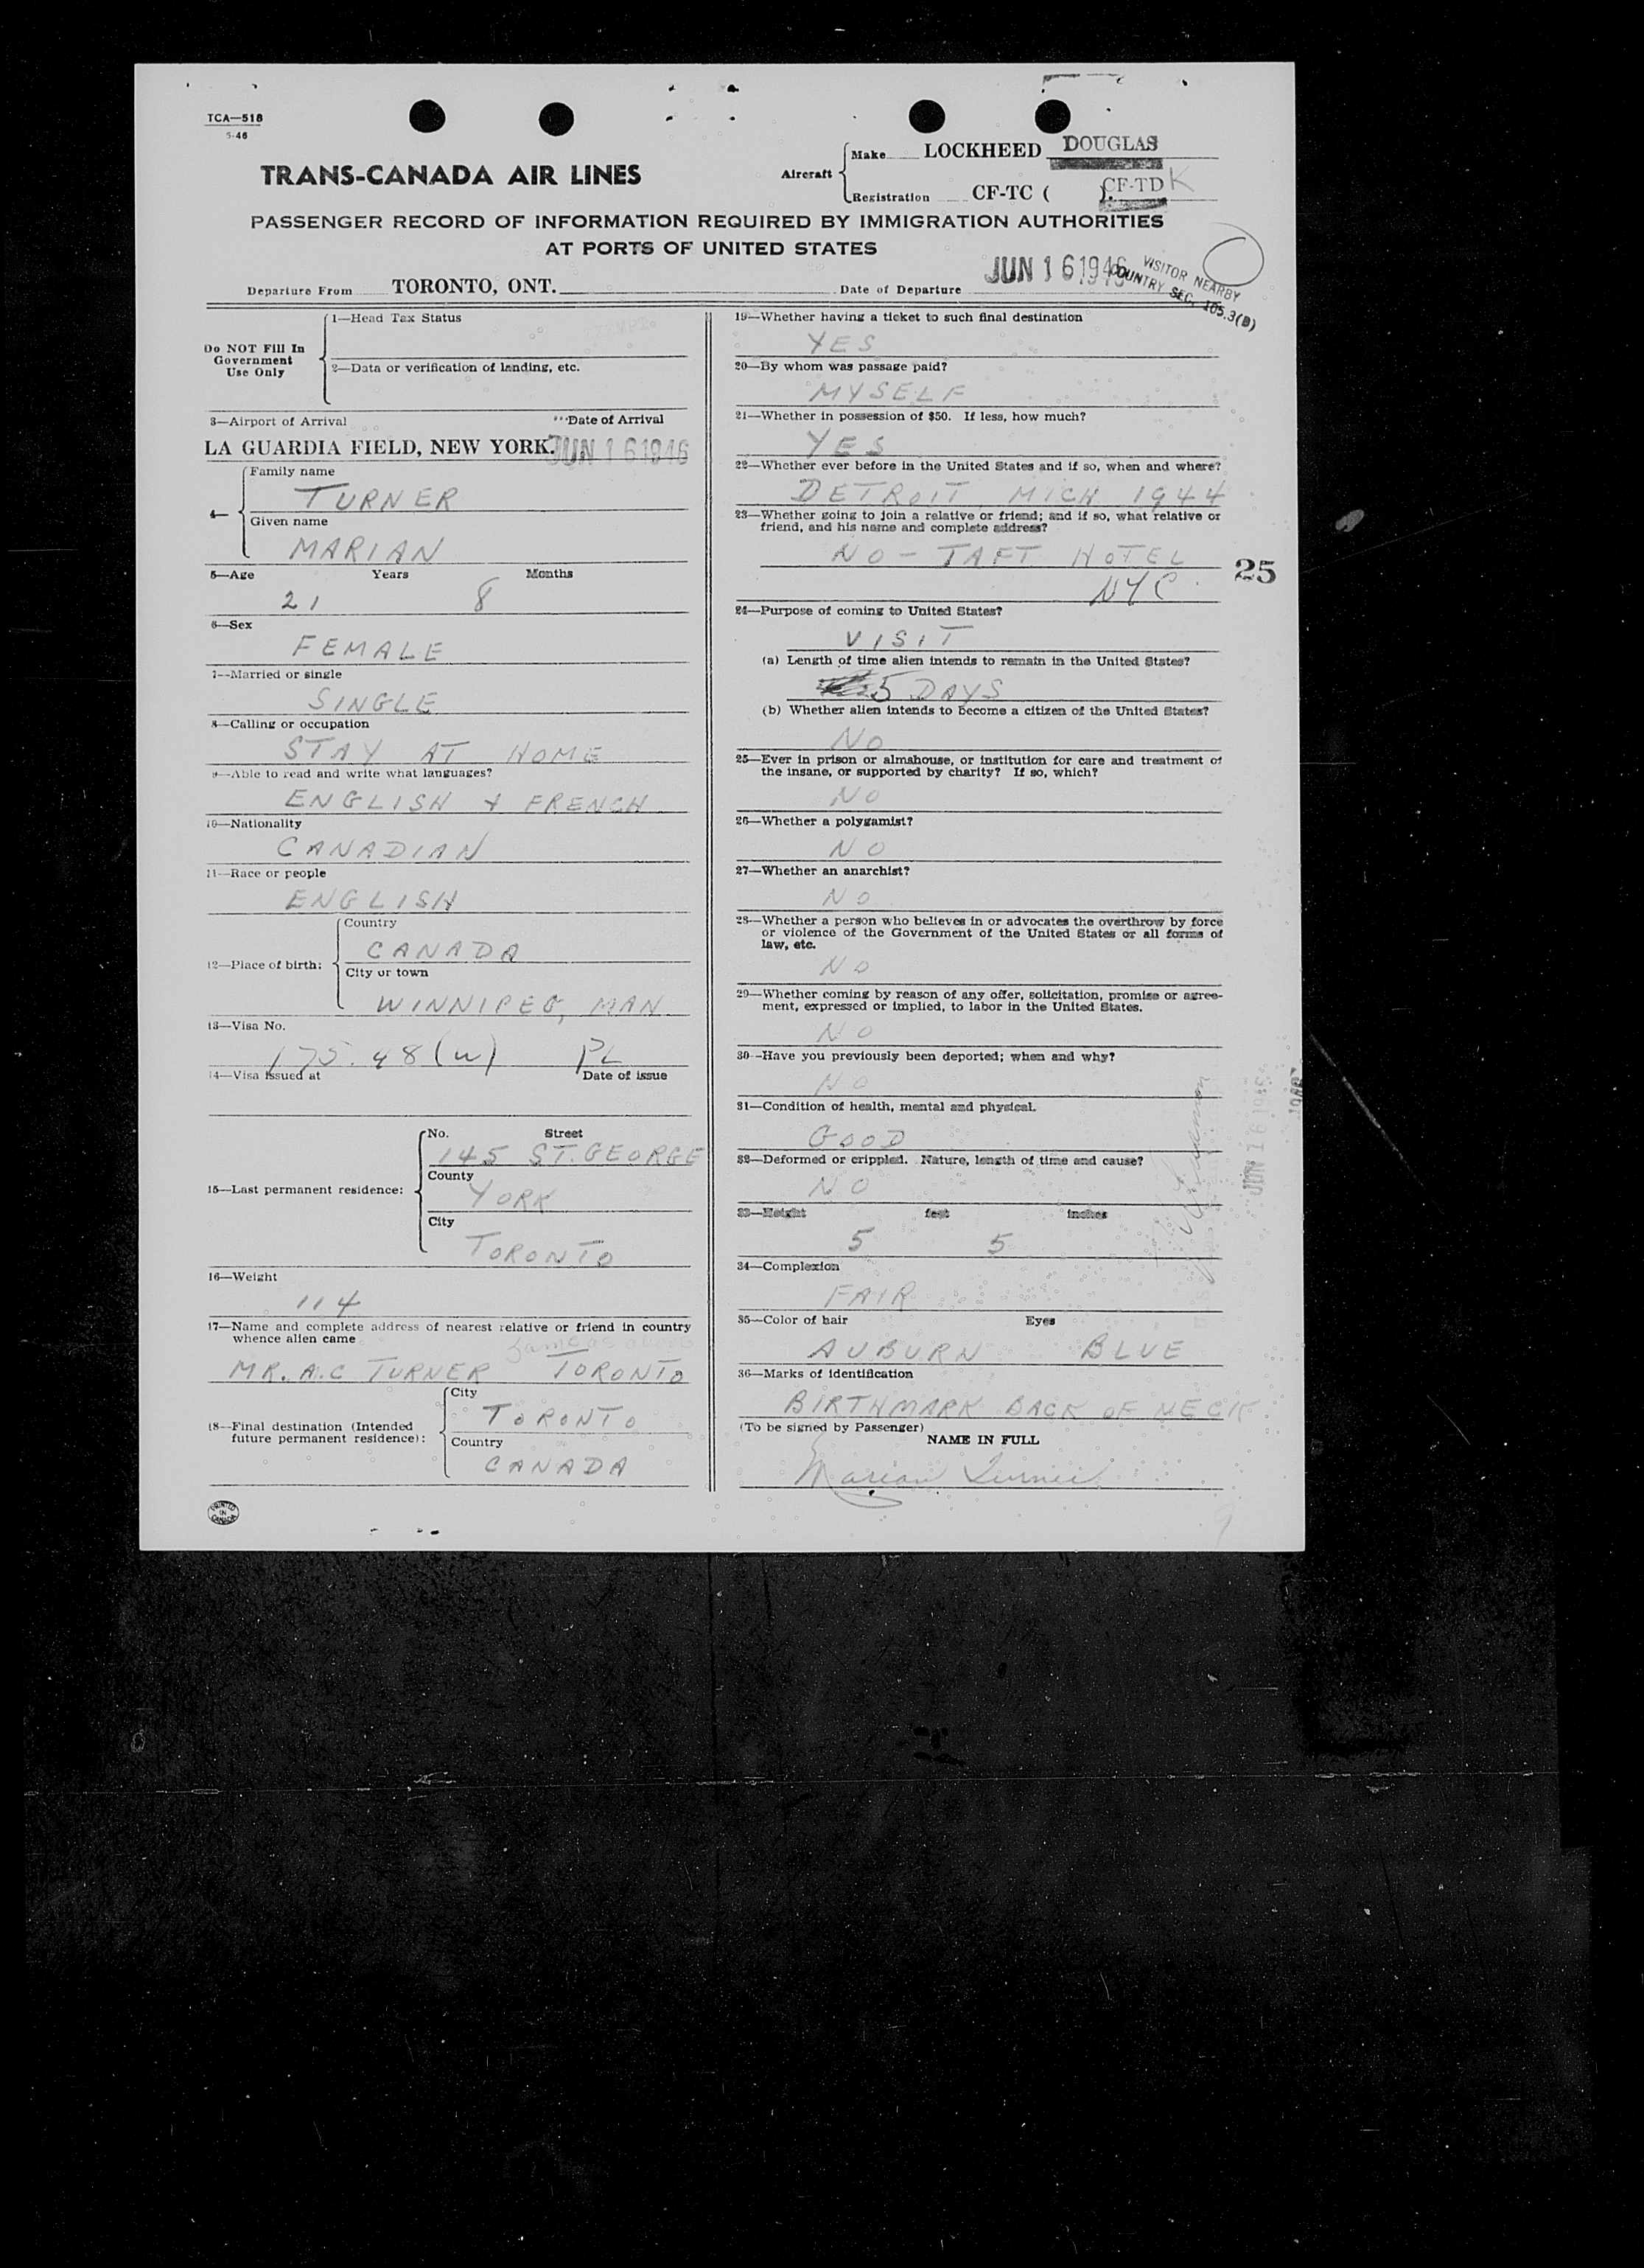 TCA—518
5-46
TRANS-CANADA AIR LINES
Aircraft
Make LOCKHEED DOUGLAS
Registration CF-TC ( ). CF-TD K
PASSENGER RECORD OF INFORMATION REQUIRED BY IMMIGRATION AUTHORITIES
AT PORTS OF UNITED STATES
Departure From TORONTO, ONT. Date of Departure JUN 16 1946
VISITOR NEARBY
COUNTRY SEC. 105.3(B)
Do NOT Fill In
Government
Use Only
1—Head Tax Status
2—Data or verification of landing, etc.
3—Airport of Arrival Date of Arrival
LA GUARDIA FIELD, NEW YORK. JUN 16 1946
4—
Family name
TURNER
Given name
MARIAN
5—Age Years Months
21 8
6—Sex
FEMALE
7—Married or single
SINGLE
8—Calling or occupation
STAY AT HOME
9—Able to read and write what languages?
ENGLISH + FRENCH
10—Nationality
CANADIAN
11—Race or people
ENGLISH
12—Place of birth:
Country
CANADA
City or town
WINNIPEG, MAN
13—Visa No.
175.48(w) PL
14—Visa issued at Date of issue
15—Last permanent residence:
No. Street
145 ST. GEORGE
County
YORK
City
TORONTO
16—Weight
114
17—Name and complete address of nearest relative or friend in country
whence alien came
same as above
MR. A.C TURNER TORONTO
18—Final destination (Intended
future permanent residence):
City
TORONTO
Country
CANADA
PRINTED
IN
CANADA
19—Whether having a ticket to such final destination
YES
20—By whom was passage paid?
MYSELF
21—Whether in possession of $50. If less, how much?
YES
22—Whether ever before in the United States and if so, when and where?
DETROIT MICH 1944
23—Whether going to join a relative or friend; and if so, what relative or
friend, and his name and complete address?
NO - TAFT HOTEL
NYC
25
24—Purpose of coming to United States?
VISIT
(a) Length of time alien intends to remain in the United States?
5 DAYS
(b) Whether alien intends to become a citizen of the United States?
NO
25—Ever in prison or almshouse, or institution for care and treatment of
the insane, or supported by charity? If so, which?
NO
26—Whether a polygamist?
NO
27—Whether an anarchist?
NO
28—Whether a person who believes in or advocates the overthrow by force
or violence of the Government of the United States or all forms of
law, etc.
NO
29—Whether coming by reason of any offer, solicitation, promise or agree-
ment, expressed or implied, to labor in the United States.
NO
30—Have you previously been deported; when and why?
NO
31—Condition of health, mental and physical.
GOOD
32—Deformed or crippled. Nature, length of time and cause?
NO
33—Height feet inches
5 5
34—Complexion
FAIR
35—Color of hair Eyes
AUBURN BLUE
36—Marks of identification
BIRTHMARK BACK OF NECK
(To be signed by Passenger)
NAME IN FULL
Marian Turner
JUN 16 1946